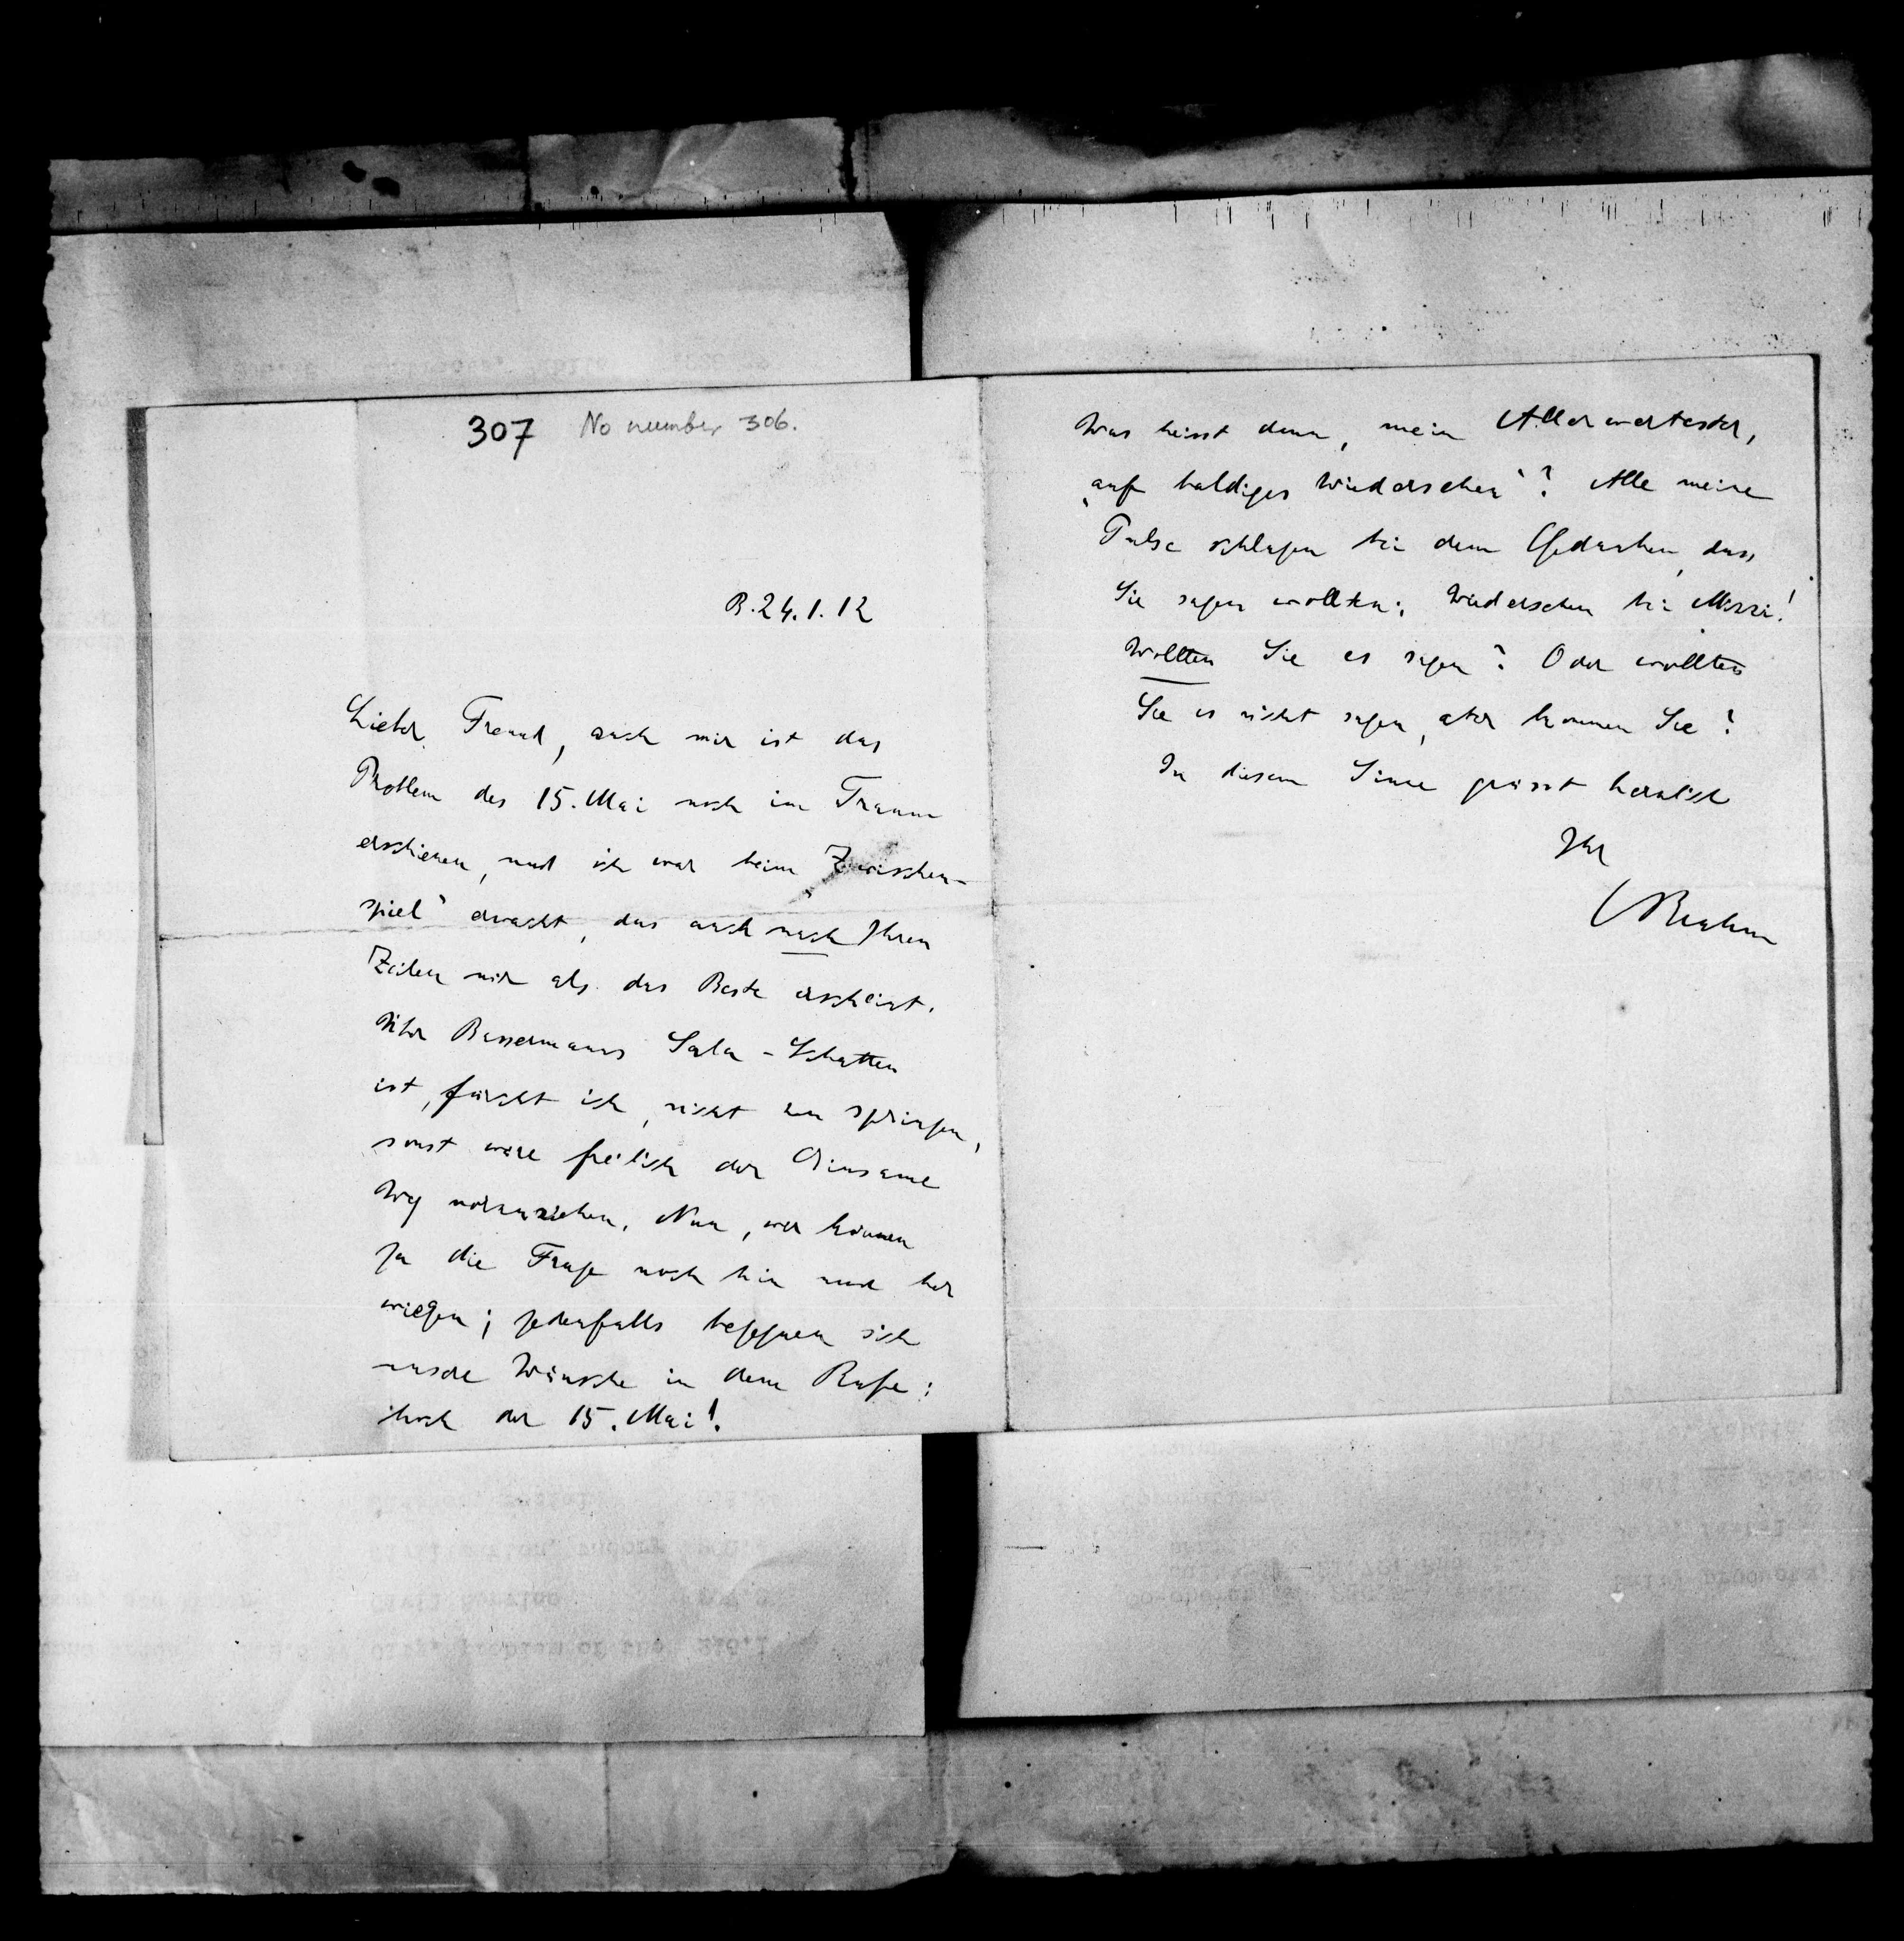 307 No number 306.
B. 24.1.12
Lieber Freund, auch mir ist das
Problem des 15. Mai noch im Traum
erschienen, und ich war beim „Zwischen-
spiel“ erwacht, das auch nach Ihren
Zeilen mir als das Beste erscheint.
Über Bassermanns Sala-Schatten
ist, fürcht ich, nicht zu springen,
sonst wäre freilich der Einsame
Weg vorzuziehen. Nun, wir können
ja die Frage noch hin und her
wiegen; jedenfalls begegnen sich
unsre Wünsche in dem Rufe:
hoch der 15. Mai!
Was heisst denn, mein Allerwertester,
„auf baldiges Wiedersehen“? Alle meine
Pulse schlagen bei dem Gedanken, dass
Sie sagen wollten: Wiedersehen bei Mizzi!
Wollten Sie es sagen? Oder wollten
Sie es nicht sagen, aber kommen Sie?
In diesem Sinne grüsst herzlich
Ihr
OBrahm